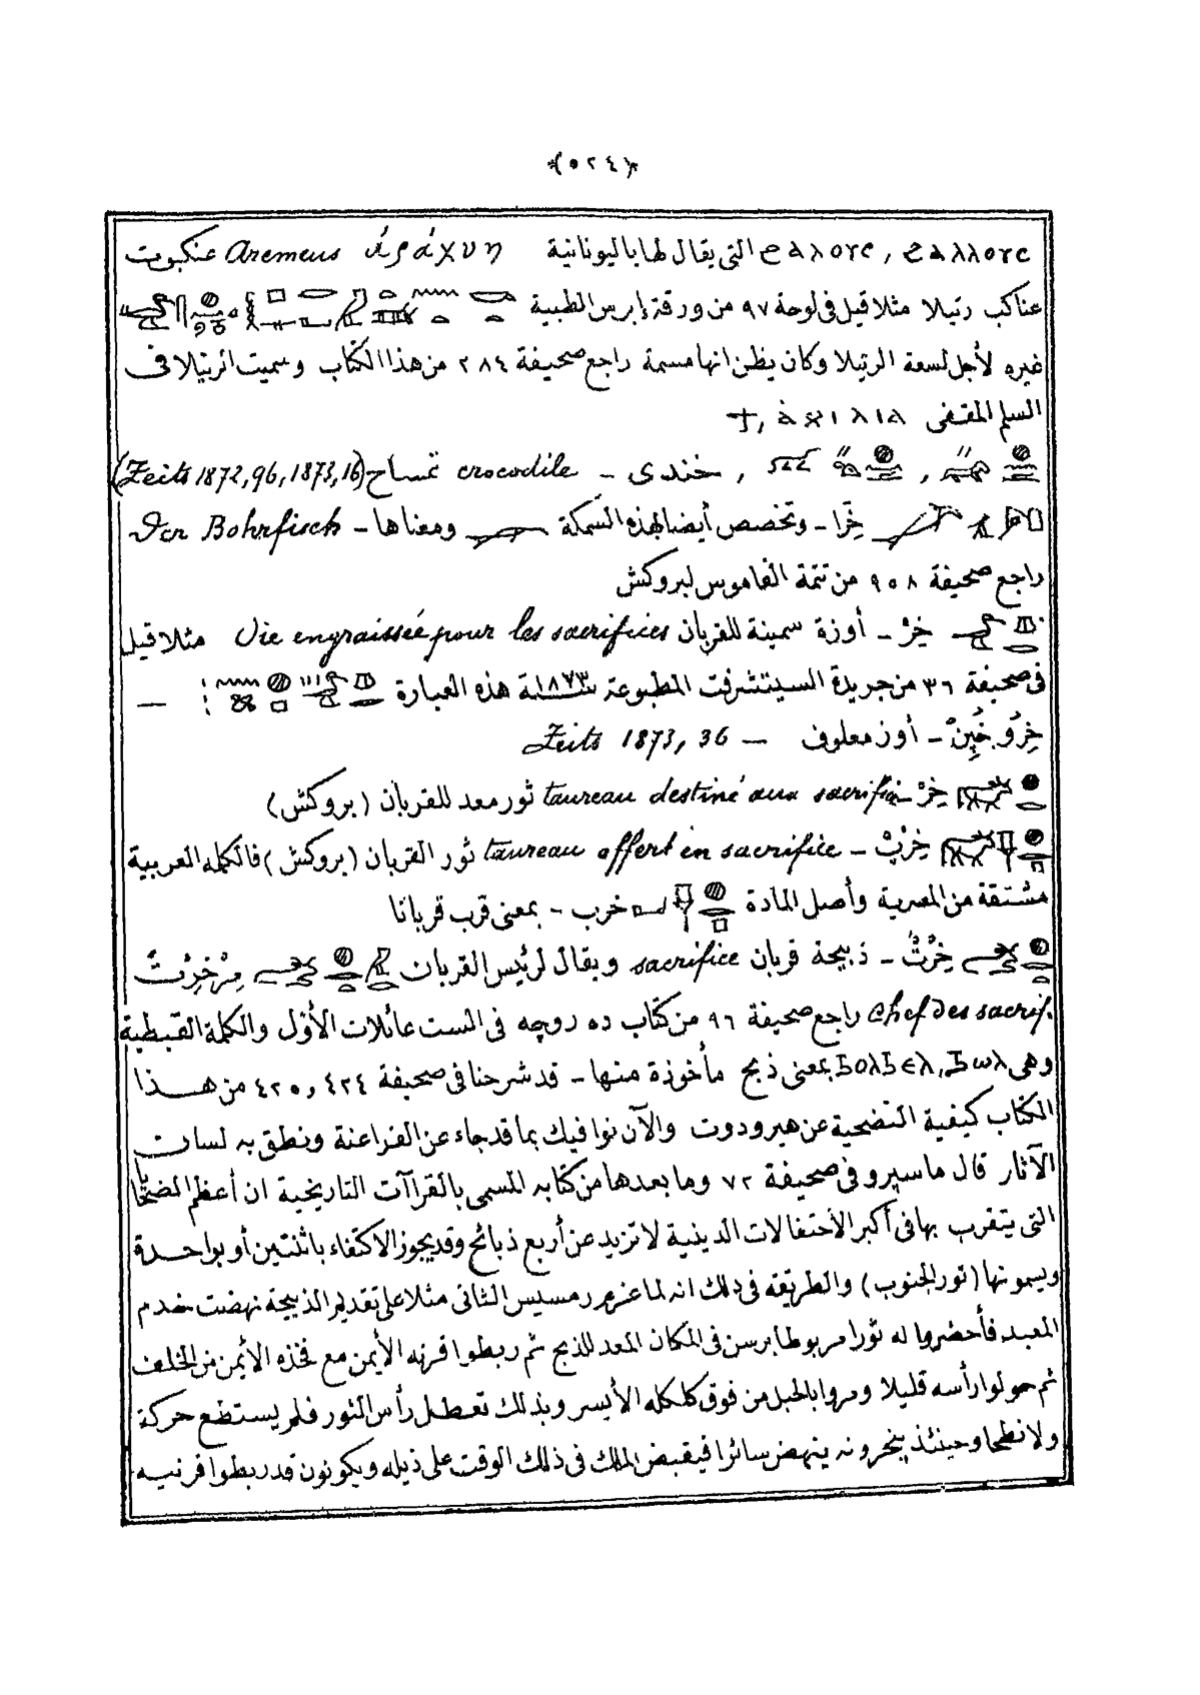 ﴿٥٢٤﴾
ϩⲁⲗⲗⲟⲩⲥ , ϩⲁⲗⲟⲩⲥ التى يقال لها باليونانية ἀράχνη Aremeus عنكبوت
عناكب رتيلا مثلا قيل فى لوحة ٩٧ من ورقة إبرس الطبية
غيره لأجل لسعة الرتيلا وكان يظن انها مسمة راجع صحيفة ٢٨٤ من هذا الكتاب وسميت الرتيلا فى
السلم المقفى
, خندى - crocodile تمساح (Zeits 1872, 96, 1873, 16)
خِرَا - وتخصص أيضا لهذه السمكة ومعناها - Der Bohrfisch
راجع صحيفة ٩٥٨ من تتمة القاموس لبروكش
خِرْ - أوزة سمينة للقربان Oie engraissée pour les sacrifices مثلا قيل
فى صحيفة ٣٦ من جريدة السيتشرفت المطبوعة سنة ١٨٧٣ هذه العبارة —
خِرُو خُبِنْ - أوز معلوف — Zeits 1873, 36
خِرْ - taureau destiné aux sacrifi. ثور معد للقربان (بروكش)
خِرْبْ - taureau offert en sacrifice ثور القربان (بروكش) فالكلمه العربية
مشتقة من المصرية وأصل المادة خرب - بمعنى قرب قربانا
خِرْتْ - ذبيحة قربان sacrifice ويقال لرئيس القربان مِرْخِرْتْ
Chef des sacrif. راجع صحيفة ٩٦ من كتاب ده روچه فى الست عائلات الأول والكلمة القبطية
وهى ϧⲟⲗϧⲉⲗ, ϧⲱⲗ بمعنى ذبح مأخوذة منها - قد شرحنا فى صحيفة ٤٢٤ و ٤٢٥ من هذا
الكتاب كيفية التضحية عن هيرودوت والآن نوافيك بما قد جاء عن الفراعنة ونطق به لسان
الآثار قال ماسپرو فى صحيفة ٧٢ وما بعدها من كتابه المسمى بالقراآت التاريخية ان أعظم الضحايا
التى يتقرب بها فى أكبر الاحتفالات الدينية لا تزيد عن أربع ذبائح وقد يجوز الاكتفاء باثنتين أو بواحدة
ويسمونها (ثور الجنوب) والطريقة فى ذلك انه لما عزم رمسيس الثانى مثلا على تقديم الذبيحة نهضت خدم
المعبد فأحضروا له ثورا مربوطا برسن فى المكان المعد للذبح ثم ربطوا قرنه الأيمن مع فخذه الأيمن من الخلف
ثم حولوا رأسه قليلا ومروا بالحبل من فوق كلكله الأيسر وبذلك تعطل رأس الثور فلم يستطع حركة
ولا نطحا وحينئذ ينخرونه ينهض سائرا فيقبض الملك فى ذلك الوقت على ذيله ويكونون قد ربطوا قرنيه